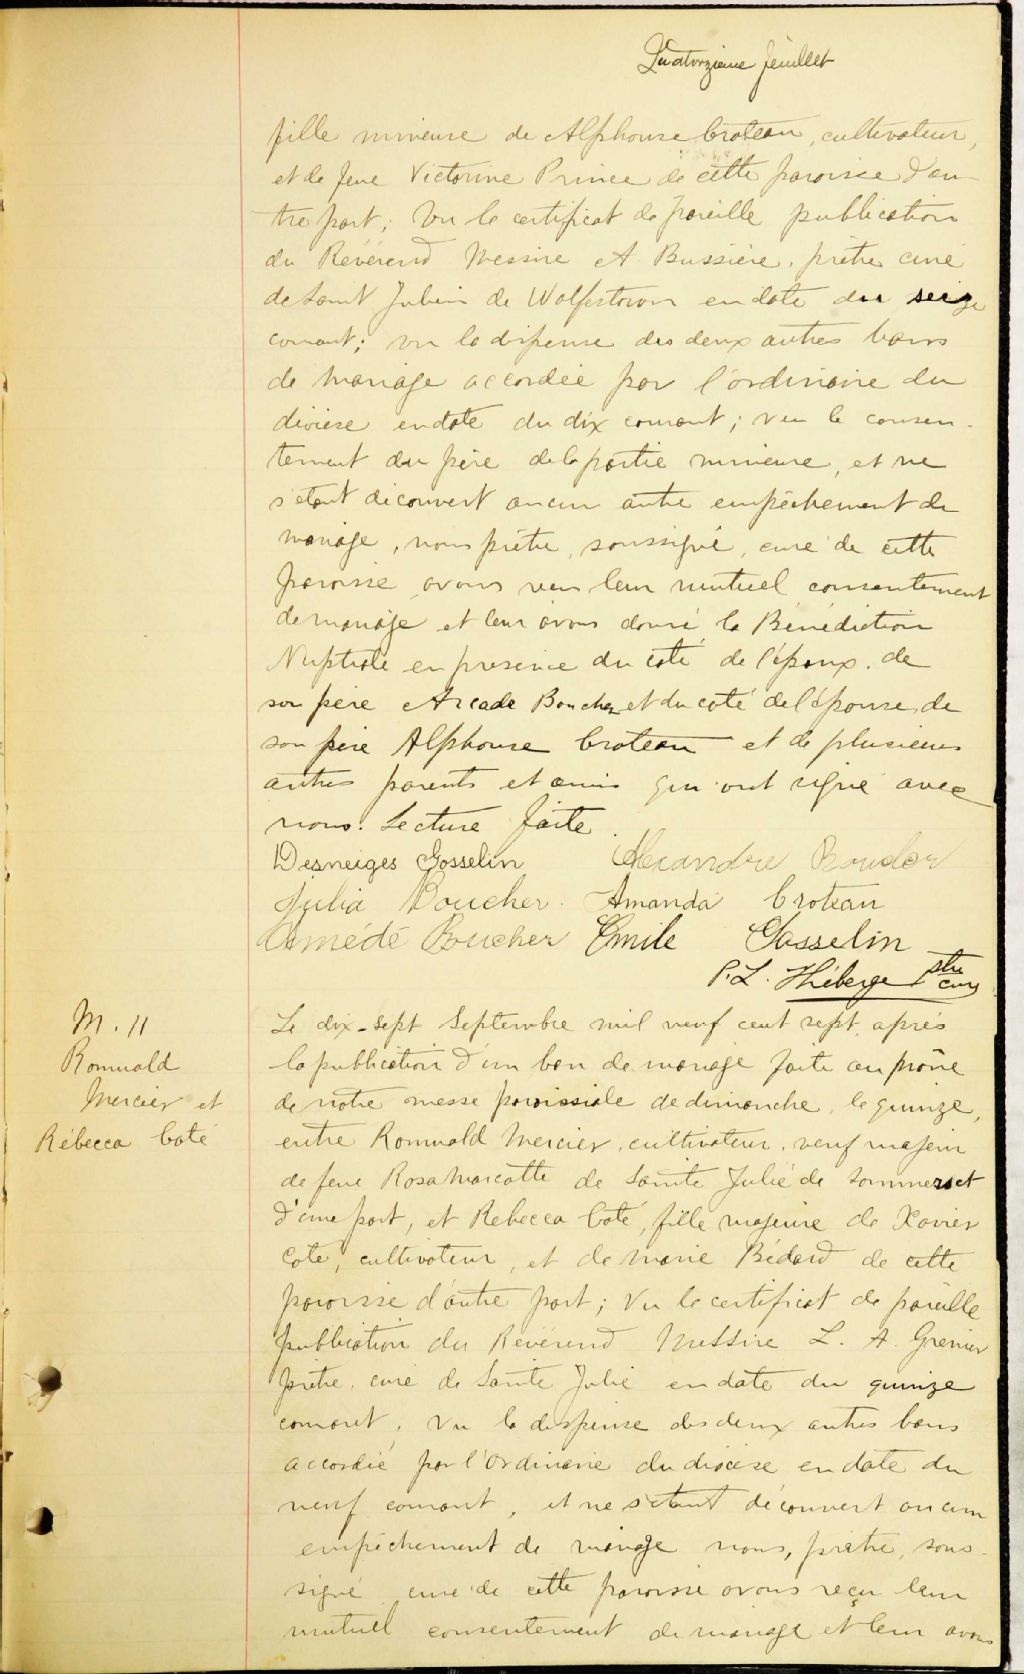 Quatorzième feuillet
fille mineure de Alphonse Croteau, cultivateur,
et de feue Victorine Prince de cette paroisse d'au
tre part; Vu le certificat de pareille publication
du Révérend Messire A Bussière, prêtre curé
de Saint Julien de Wolfestown en date du seize
courant; vu la dispense des deux autres bans
de mariage accordée par l'ordinaire du
diocèse en date du dix courant; vu le consen-
tement du père de la partie mineure, et ne
s'étant découvert aucun autre empêchement de
mariage, nous prêtre, soussigné, curé de cette
paroisse avons reçu leur mutuel consentement
de mariage et leur avons donné la Bénédiction
Nuptiale en présence du coté de l'époux, de
son père Arcade Boucher et du coté de l'épouse, de
son père Alphonse Croteau et de plusieurs
autres parents et amis qui ont signé avec
nous. Lecture faite.
Desneiges Gosselin Alexandre Boucher
Julia Boucher. Amanda Croteau
Amédé Boucher Emile Gosselin
P. L. Théberge Ptre curé
M. 11
Romuald
Mercier et
Rébecca Coté
Le dix-sept Septembre mil neuf cent sept, après
la publication d'un ban de mariage faite au prône
de notre messe paroissiale de dimanche, le quinze,
entre Romuald Mercier, cultivateur, veuf majeur
de feue Rosa Marcotte de Sainte Julie de Sommerset
d'une part, et Rebecca Coté, fille majeure de Xavier
Coté, cultivateur, et de Marie Bédard de cette
paroisse d'autre part; Vu le certificat de pareille
publication du Révérend Messire L. A. Grenier
prêtre, curé de Sainte Julie en date du quinze
courant, Vu la dispense des deux autres bans
accordée par l'Ordinaire du diocèse en date du
neuf courant, et ne s'étant découvert aucun
empêchement de mariage nous, prêtre, sous-
signé curé de cette paroisse avons reçu leur
mutuel consentement de mariage et leur avons